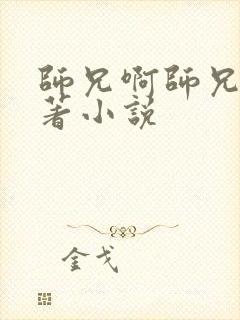 師兄啊師兄
著小説
金戈